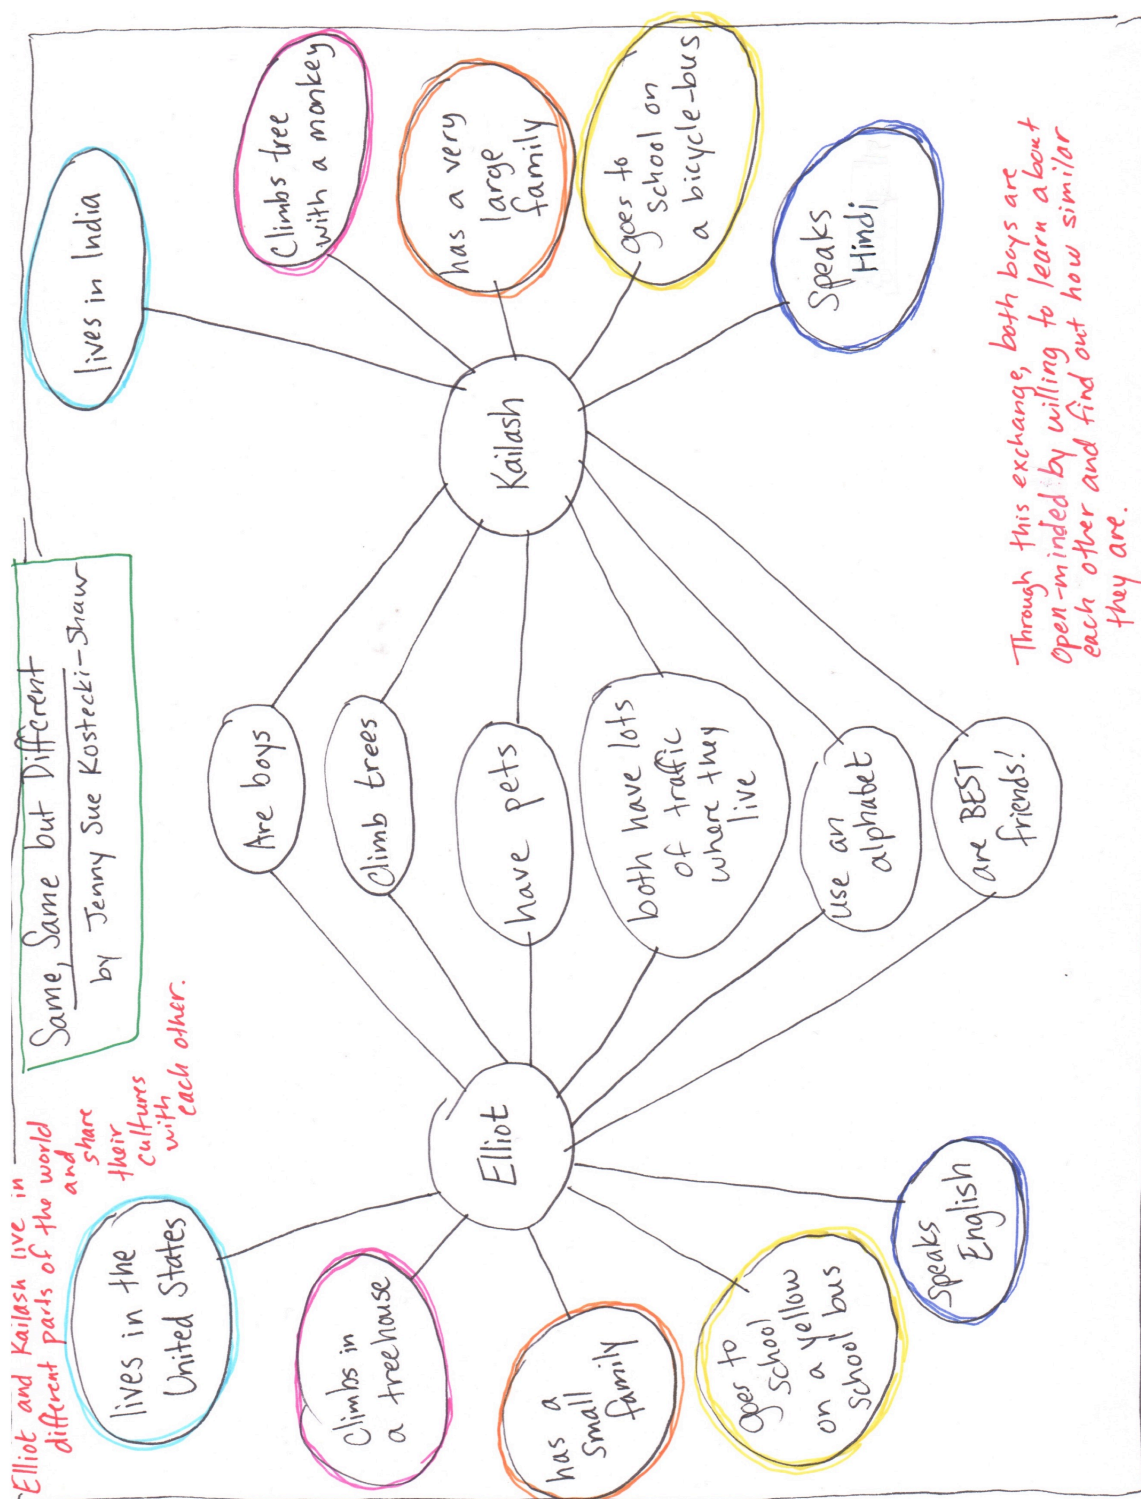 Elliot and Kailash live in
different parts of the world
and
share
their
cultures
with
each other.
Same, Same but Different
by Jenny Sue Kostecki-Shaw
lives in the
United States
Climbs in
a treehouse
has a
small
family
goes to
School
on a yellow
school bus
Speaks
English
Elliot
Are boys
Climb trees
have pets
both have lots
of traffic
where they
live
use an
alphabet
are BEST
friends!
Kailash
lives in India
Climbs tree
with a monkey
has a very
large
family
goes to
school on
a bicycle-bus
Speaks
Hindi
Through this exchange, both boys are
Open-minded by willing to learn about
each other and find out how similar
they are.